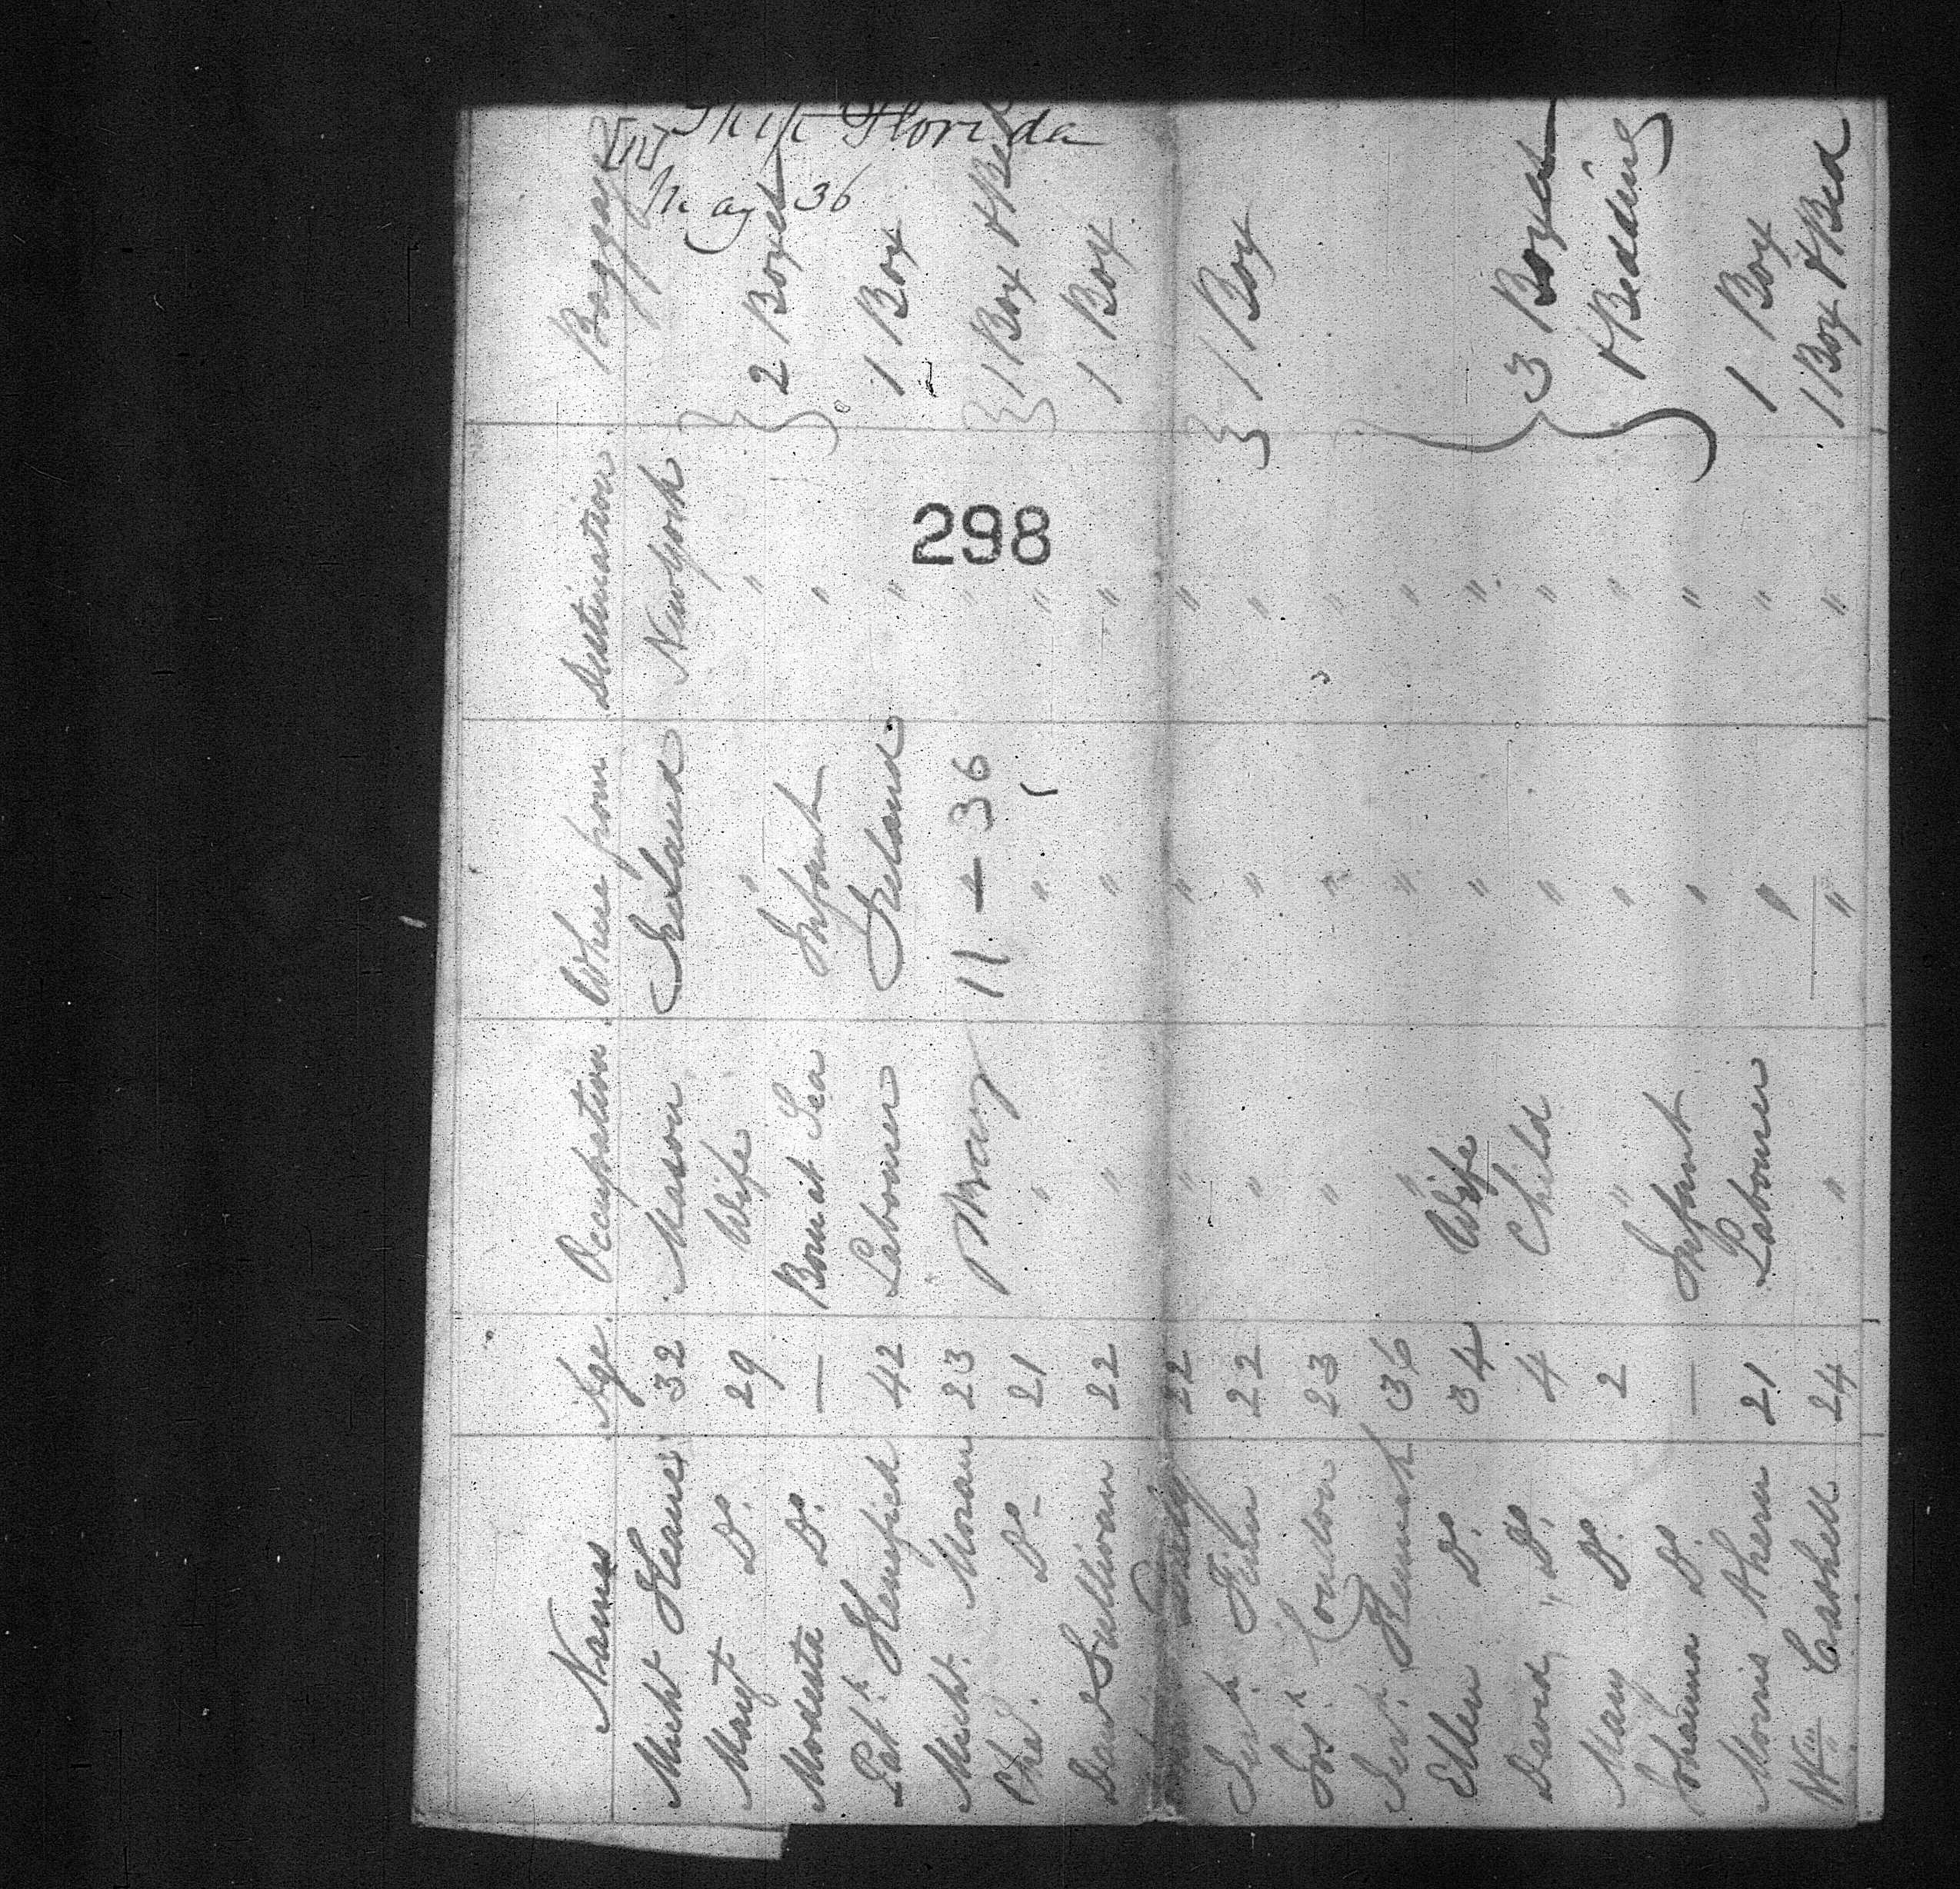 Ship Florida
May 36
298
Names Age Occupation Where from Destination Baggage
Mich Hearn 32 Mason Ireland New York
Margt Do. 29 Wife " " 2 Boxes
Modesta Do. — Born at Sea Infant "
Patk. Henefick 42 Labourer Ireland " 1 Box
Michl. Moran 23 " 1 Box & Bed
Do- 21 " " "
May 11 - 36
Danl Sullivan 22 " " " 1 Box
22 " " "
22 " " " 1 Box
Condon 23 " " "
36 " " "
Ellen Do. 34 Wife " "
David Do. 4 Child " " 3 Boxes
Mary Do. 2 " " " & Bedding
Johanna Do. — Infant " "
Morris Ahern 21 Labourer " " 1 Box
Wm Cashell 24 " " " 1 Box & Bed